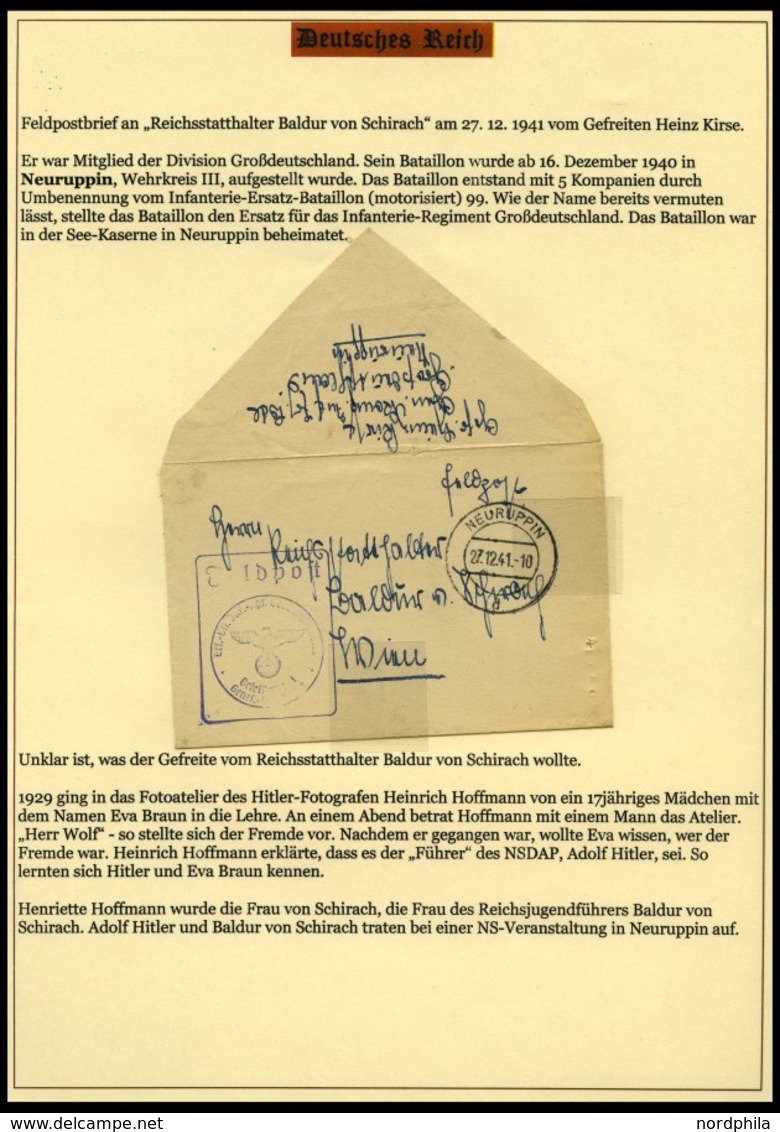 Deutsches Reich
Feldpostbrief an „Reichsstatthalter Baldur von Schirach“ am 27. 12. 1941 vom Gefreiten Heinz Kirse.
Er war Mitglied der Division Großdeutschland. Sein Bataillon wurde ab 16. Dezember 1940 in
Neuruppin, Wehrkreis III, aufgestellt wurde. Das Bataillon entstand mit 5 Kompanien durch
Umbenennung vom Infanterie-Ersatz-Bataillon (motorisiert) 99. Wie der Name bereits vermuten
lässt, stellte das Bataillon den Ersatz für das Infanterie-Regiment Großdeutschland. Das Bataillon war
in der See-Kaserne in Neuruppin beheimatet.
Neuruppin
Feldpost
NEURUPPIN
27.12.41.-10
Herrn
Reichsstatthalter
Baldur v. Schirach
Wien
Unklar ist, was der Gefreite vom Reichsstatthalter Baldur von Schirach wollte.
1929 ging in das Fotoatelier des Hitler-Fotografen Heinrich Hoffmann von ein 17jähriges Mädchen mit
dem Namen Eva Braun in die Lehre. An einem Abend betrat Hoffmann mit einem Mann das Atelier.
„Herr Wolf“ - so stellte sich der Fremde vor. Nachdem er gegangen war, wollte Eva wissen, wer der
Fremde war. Heinrich Hoffmann erklärte, dass es der „Führer“ des NSDAP, Adolf Hitler, sei. So
lernten sich Hitler und Eva Braun kennen.
Henriette Hoffmann wurde die Frau von Schirach, die Frau des Reichsjugendführers Baldur von
Schirach. Adolf Hitler und Baldur von Schirach traten bei einer NS-Veranstaltung in Neuruppin auf.
www.delcampe.net
nordphila